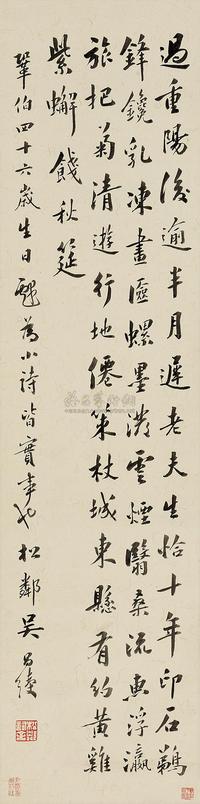 過重陽後逾半月遲老夫生恰十年印石鵜
鋒鑱乳凍畫匳螺墨潑雲煙翳桑流惠浮瀛
旅把菊清遊行地僊策杖城東懸有約黃雞
紫蠏餞秋筵
鞏伯四十六歲生日戲為小詩皆實事也松鄰吳昌綬